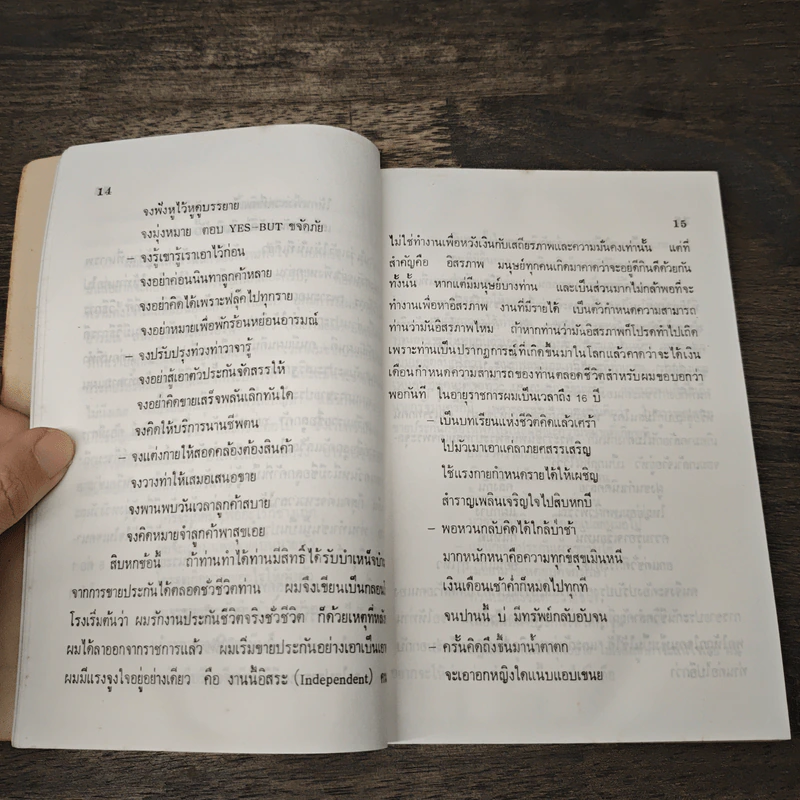 14
จงฟังหูไว้หูดูบรรยาย
จงมุ่งหมาย ตอบ YES-BUT ขจัดภัย
- จงรู้เขารู้เราเอาไว้ก่อน
จงอย่าค่อนนินทาลูกค้าหลาย
จงอย่าคิดได้เพราะฟลุ๊คไปทุกราย
จงอย่าหมายเพื่อพักร้อนหย่อนอารมณ์
- จงปรับปรุงท่วงท่าวาจารู้
จงอย่าสู้เอาตัวประกันจัดสรรให้
จงอย่าคิดขายเสร็จพลันเลิกทันใด
จงคิดให้บริการนานชีพตน
- จงแต่งกายให้สอดคล้องต้องสินค้า
จงวางท่าให้เสมอเสนอขาย
จงพานพบวันเวลาลูกค้าสบาย
จงคิดหมายจำลูกค้าพาสุขเอย
สิบหกข้อนี้ ถ้าท่านทำได้ท่านมีสิทธิ์ได้รับบำเหน็จ
จากการขายประกันได้ตลอดชั่วชีวิตท่าน ผมจึงเขียนเป็นกลอน
โรงเริ่มต้นว่า ผมรักงานประกันชีวิตจริงชั่วชีวิต ก็ด้วยเหตุที่
ผมได้ลาออกจากราชการแล้ว ผมเริ่มขายประกันอย่างเอาเป็น
ผมมีแรงจูงใจอยู่อย่างเดียว คือ งานนี้อิสระ (Independent)
15
ไม่ใช่ทำงานเพื่อหวังเงินกับเสถียรภาพและความมั่นคงเท่านั้น แต่ที่
สำคัญคือ อิสรภาพ มนุษย์ทุกคนเกิดมาคาดว่าจะอยู่ดีกินดีด้วยกัน
ทั้งนั้น หากแต่มีมนุษย์บางท่าน และเป็นส่วนมากไม่กล้าพอที่จะ
ทำงานเพื่อหาอิสรภาพ งานที่มีรายได้ เป็นตัวกำหนดความสามารถ
ท่านว่ามันอิสรภาพไหม ถ้าหากท่านว่ามันอิสรภาพก็โปรดทำไปเถิด
เพราะท่านเป็นปรากฏการณ์ที่เกิดขึ้นมาในโลกแล้วคาดว่าจะได้เงิน
เดือนกำหนดความสามารถของท่านตลอดชีวิตสำหรับผมขอบอกว่า
พอกันที ในอายุราชการผมเป็นเวลาถึง 16 ปี
- เป็นบทเรียนแห่งชีวิตคิดแล้วเศร้า
ไปมัวเมาเอาแค่ลาภยศสรรเสริญ
ใช้แรงกายกำหนดรายได้ให้เผชิญ
สำราญเพลินเจริญใจไปสิบหกปี
- พอหวนกลับคิดได้ใกล้ป่าช้า
มากหนักหนาคือความทุกข์สุขเมินหนี
เงินเดือนเช้าค่ำก็หมดไปทุกที
จนปานนี้ บ่ มีทรัพย์กลับอับจน
- ครั้นคิดถึงขึ้นมาน้ำตาตก
จะเอาอกหญิงใดแนบแอบเขนย